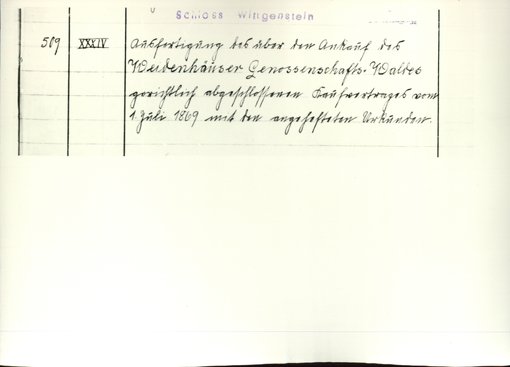 Schloss Wittgenstein
509 XXXIV Ausfertigung des über den Ankauf des
Weidenhäuser Genossenschafts-Waldes
gerichtlich abgeschlossenen Kaufvertrages vom
1. Juli 1869 mit den angehefteten Urkunden.